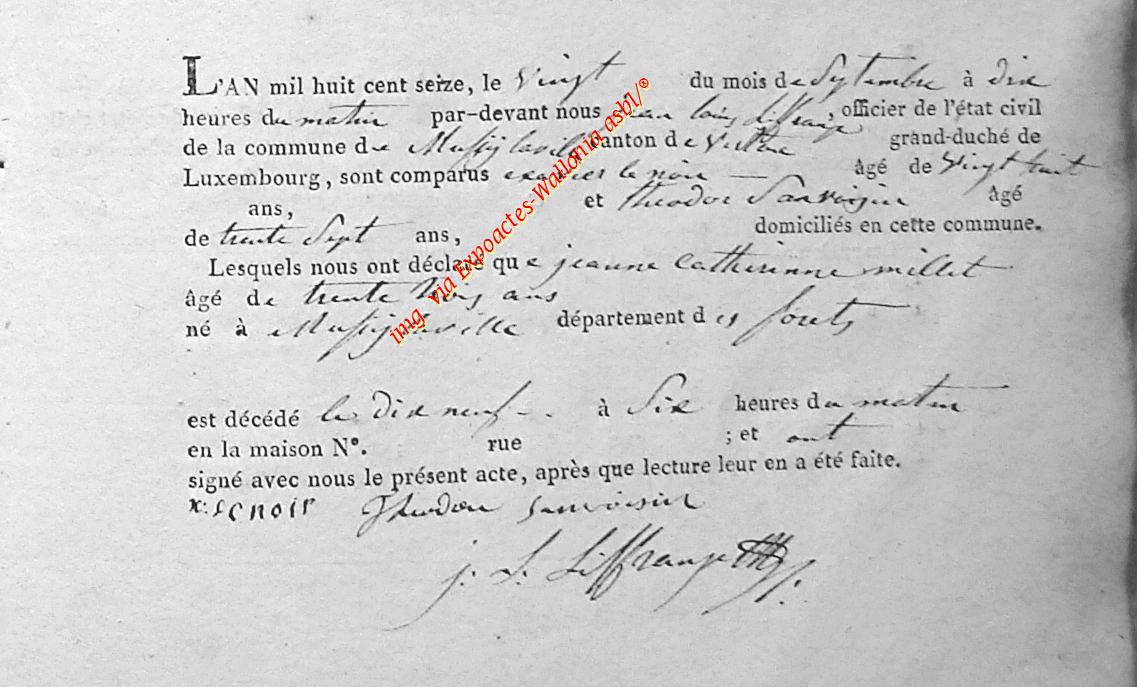 L'AN mil huit cent seize, le Vingt du mois de Septembre à dix
heures du matin par-devant nous jean louis Liffrange, officier de l'état civil
de la commune de Mussy la ville canton de Virton grand-duché de
Luxembourg, sont comparus exavier le noir — âgé de Vingt huit
ans, et theodor Sanvoisin âgé
de trente Sept ans, domiciliés en cette commune.
Lesquels nous ont déclaré que jeanne Catherinne millet
âgé de trente trois ans
né à Mussy la ville département des forets
est décédé le Dix neuf à Six heures du matin
en la maison N°. rue ; et ont
signé avec nous le présent acte, après que lecture leur en a été faite.
x: lenoir Theodore Sanvoisin
j. L. Liffrange
img via Expoactes-Wallonia asbl/®